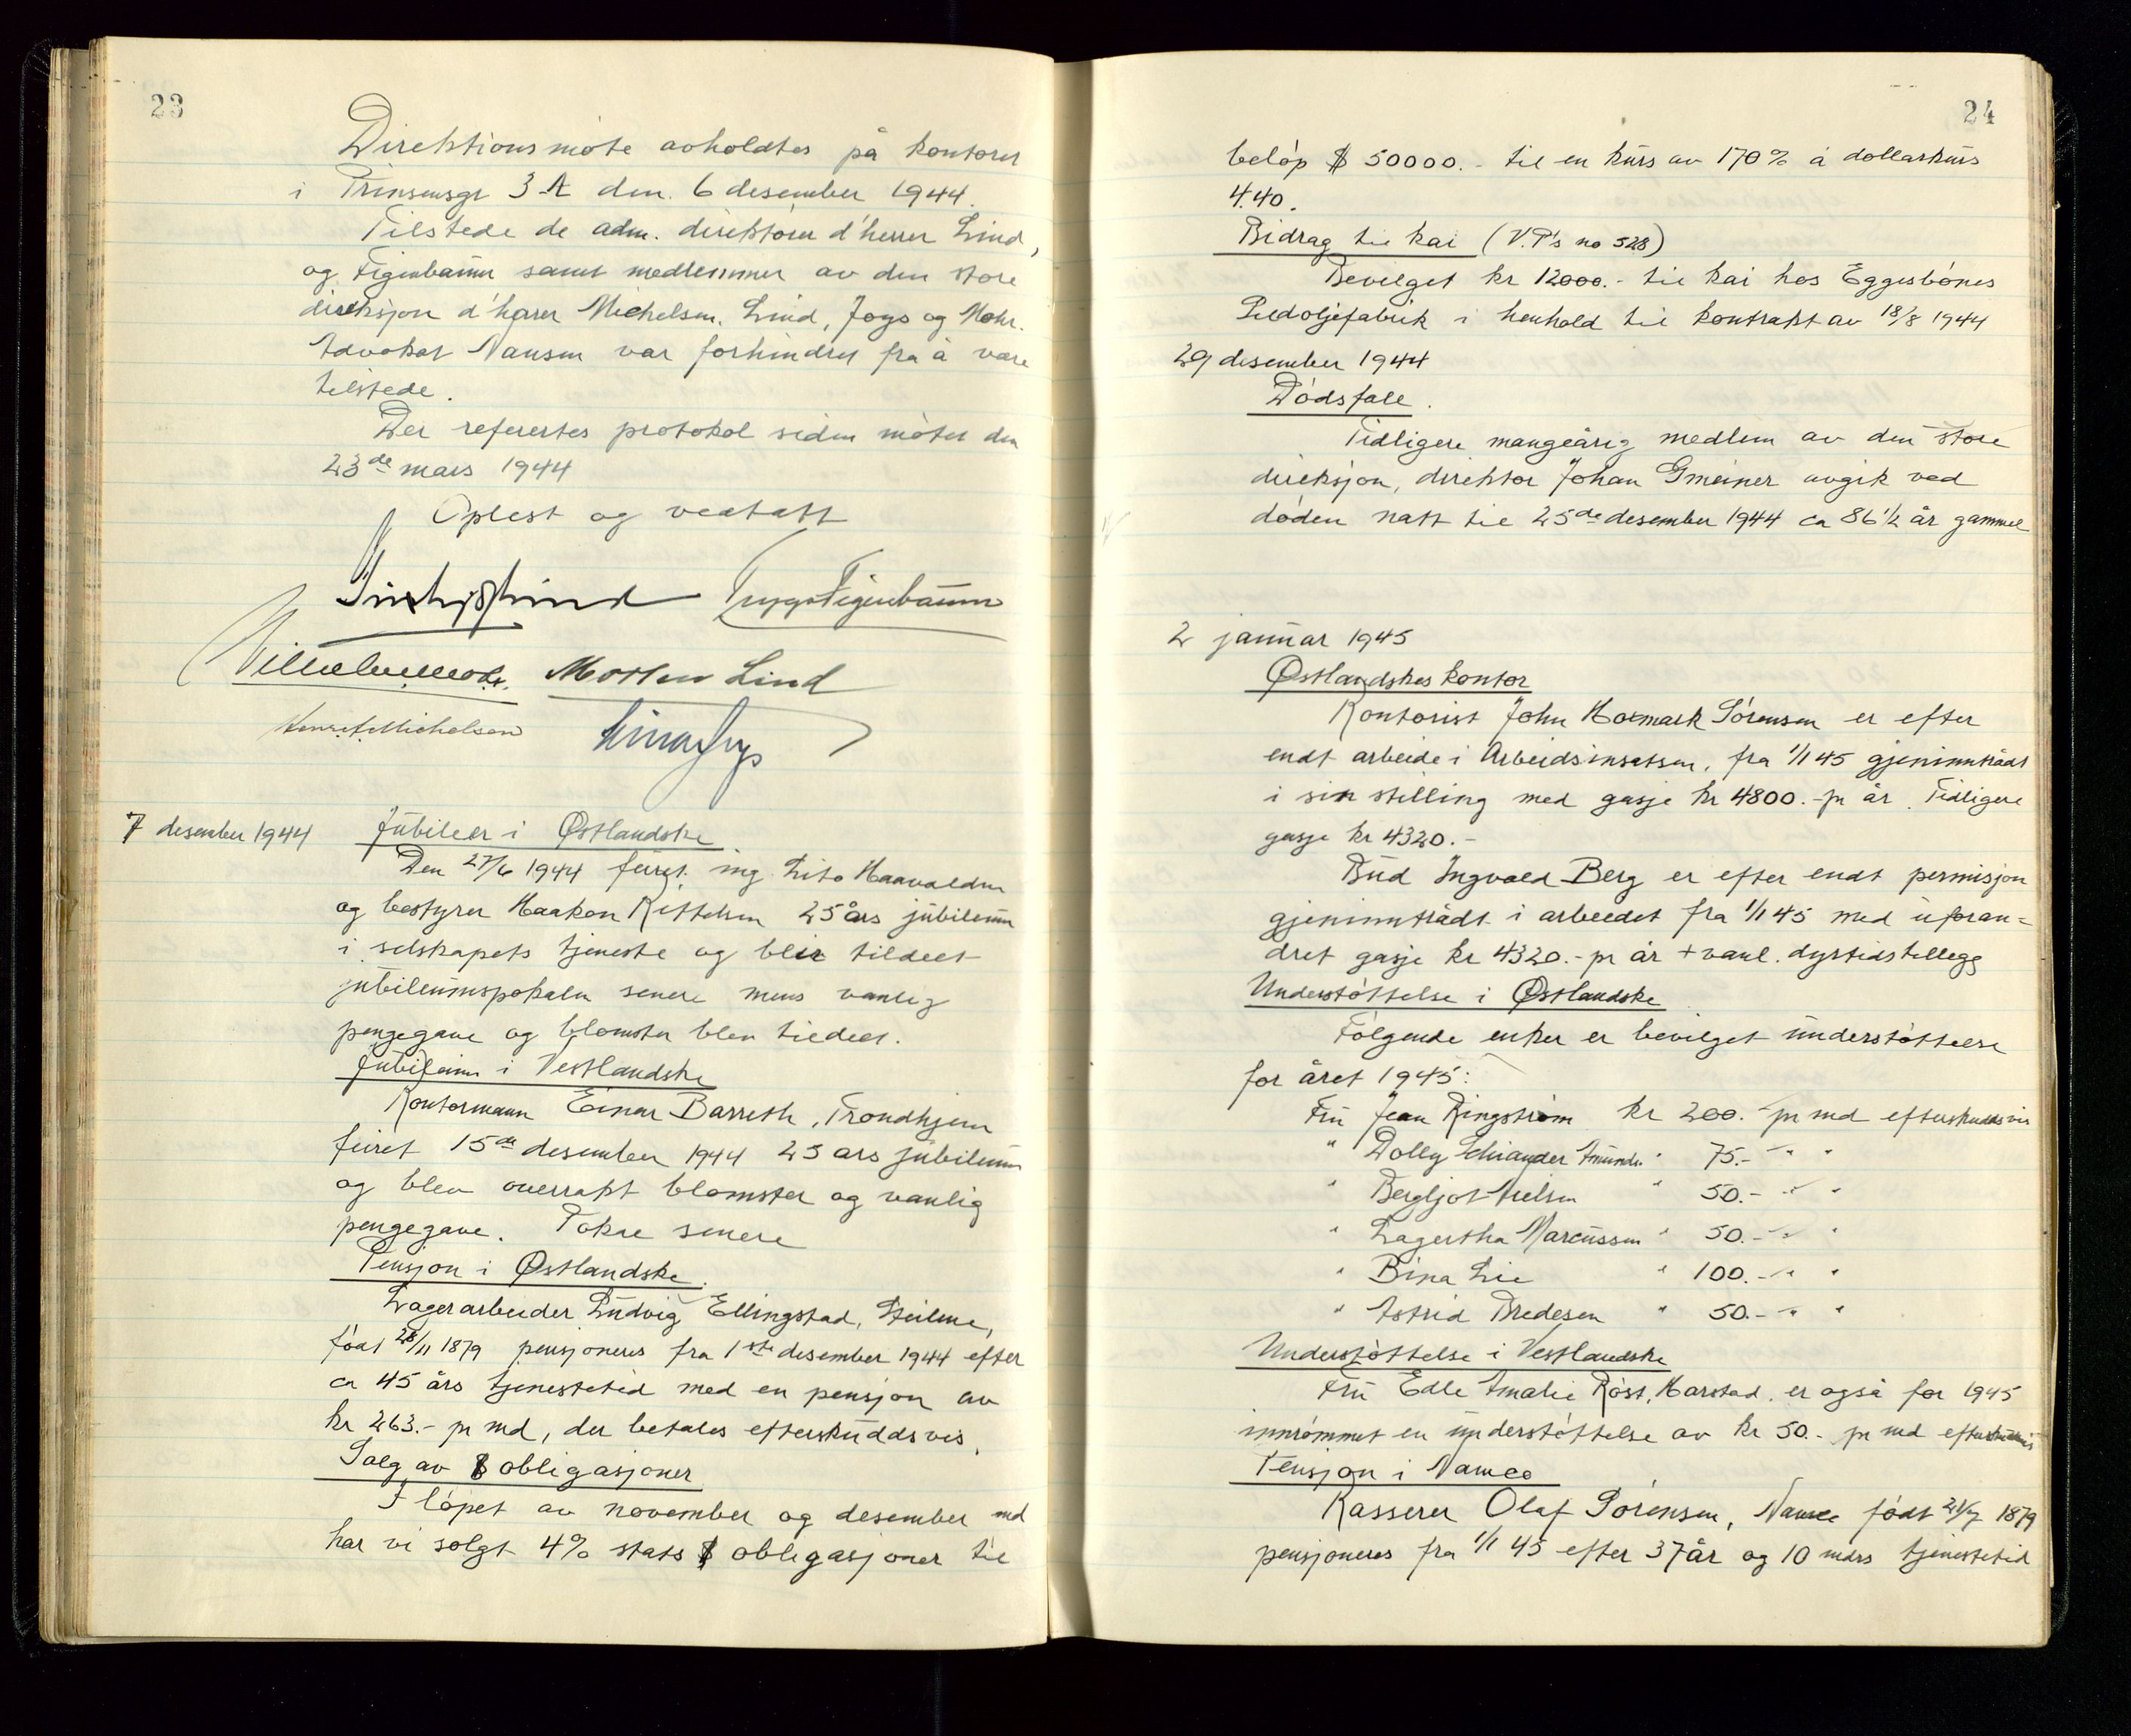 23
Direktionsmøte avholdtes på kontoret
i Prinsensgt 3A den. 6 desember 1944.
Tilstede de adm. direktører d'herrer Lind,
og Figenbaum samt medlemmer av den store
direksjon d'herrer Michelsen, Lind, Joys og Mohr.
Advokat Nansen var forhindret fra å være
tilstede.
Der refertes protokol siden møtet den
23de mars 1944
Oplest og vedtatt
Trygve Figenbaum
Morten Lind
Michelsen
7 desember 1944
Jubileer i Østlandske
Den 27/6 1944 feiret ing. Haavaldsen
og bestyrer Haakon Kittelsen 25 års jubileum
i selskapets tjeneste og blir tildelt
jubileumspokalen senere mens vanlig
pengegave og blomster blev tildelt.
Jubileum i Vestlandske
Kontormann Einar Barreth, Trondhjem
feiret 15de desember 1944 25 års jubileum
og blev overrakt blomster og vanlig
pengegave. Pokal senere
Pensjon i Østlandske.
Lagerarbeider Ludvig Ellingstad, Steilene,
født 28/11 1879 pensjoneres fra 1ste desember 1944 efter
ca 45 års tjenestetid med en pensjon av
kr 263.- pr md, der betales efterskuddsvis.
Salg av $ obligasjoner
I løpet av november og desember md
har vi solgt 4% stats $ obligasjoner til
24
beløp $ 50000.- til en kurs av 170% à dollarkurs
4.40.
Bidrag til kai (V.P's no 528)
Bevilget kr 12000.- til kai hos Eggesbønes
Sildoljefabrik i henhold til kontrakt av 18/8 1944
29 desember 1944
Dødsfall.
Tidligere mangeårig medlem av den store
direksjon, direktør Johan Gmeiner avgik ved
døden natt til 25de desember 1944 ca 86 1/2 år gammel
2 januar 1945
Østlandskes kontor
Kontorist John Hormark Sørensen er efter
endt arbeide i Arbeidsinsatsen, fra 1/1 45 gjeninntrådt
i sin stilling med gasje kr 4800.- pr år. Tidligere
gasje kr 4320.-
Bud Ingvald Berg er efter endt permisjon
gjeninntrådt i arbeidet fra 1/1 45 med uforan=
dret gasje kr 4320.- pr år + vanl. dyrtidstillegg
Understøttelse i Østlandske
Følgende enker er bevilget understøttelse
for året 1945:
Fru Jean Ringstrøm kr 200.- pr md efterskuddsvis
" Dolly Schiander Amunds. " 75.- " "
" Bergljot Nielsen " 50.- " "
" Lagertha Marcussen " 50.- " "
" Bina Lie " 100.- " "
" Astrid Bredesen " 50.- " "
Understøttelse i Vestlandske
Fru Edle Amalie Røst, Harstad, er også for 1945
innrømmet en understøttelse av kr 50.- pr md
Pensjon i Namco
Kasserer Olaf Sørensen, Namco født 21/7 1879
pensjoneres fra 1/1 45 efter 37 år og 10 mdrs tjenestetid